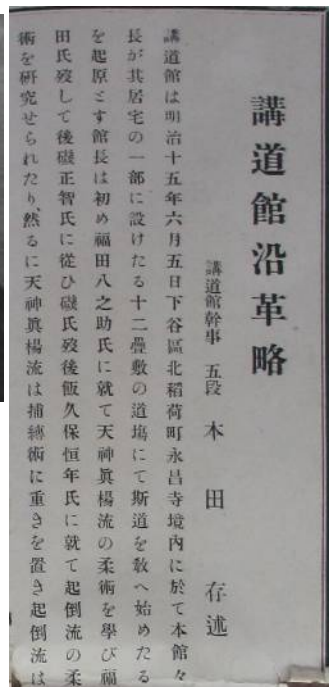 講道館沿革略
講道館幹事 五段 本田 存述
講道館は明治十五年六月五日下谷區北稻荷町永昌寺境内に於て本館々
長が其居宅の一部に設けたる十二疊敷の道塲にて斯道を敎へ始めたる
を起原とす館長は初め福田八之助氏に就て天神眞楊流の柔術を學び福
田氏歿して後磯正智氏に從ひ磯氏歿後飯久保恒年氏に就て起倒流の柔
術を研究せられたり、然るに天神眞楊流は捕縛術に重きを置き起倒流は